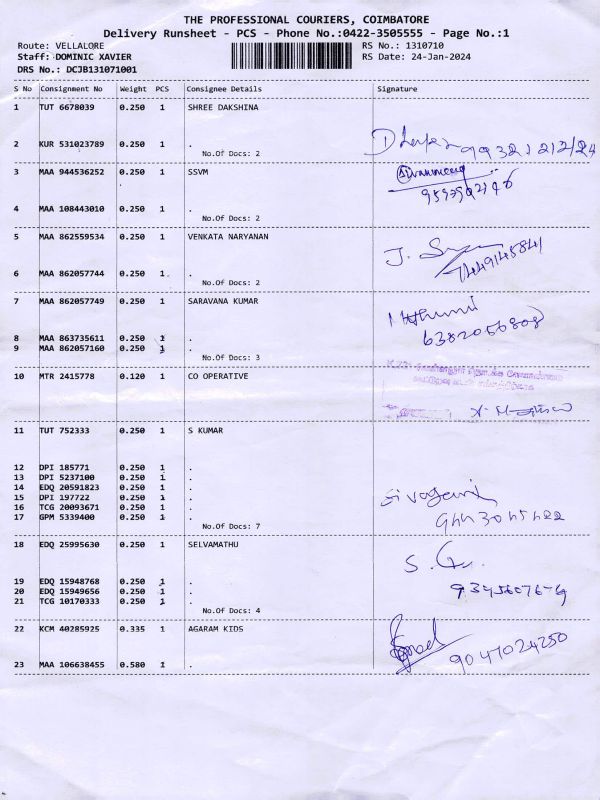 THE PROFESSIONAL COURIERS, COIMBATORE
Delivery Runsheet - PCS - Phone No.:0422-3505555 - Page No.:1
Route: VELLALORE RS No.: 1310710
Staff: DOMINIC XAVIER RS Date: 24-Jan-2024
DRS No.: DCJB131071001
S No Consignment No Weight PCS Consignee Details Signature
1 TUT 6678039 0.250 1 SHREE DAKSHINA
2 KUR 531023789 0.250 1 .
No.Of Docs: 2
3 MAA 944536252 0.250 1 SSVM
4 MAA 108443010 0.250 1 .
No.Of Docs: 2
5 MAA 862559534 0.250 1 VENKATA NARYANAN
J.
7449145841
6 MAA 862057744 0.250 1 .
No.Of Docs: 2
7 MAA 862057749 0.250 1 SARAVANA KUMAR
6382056808
8 MAA 863735611 0.250 1 .
9 MAA 862057160 0.250 1 .
No.Of Docs: 3
10 MTR 2415778 0.120 1 CO OPERATIVE
11 TUT 752333 0.250 1 S KUMAR
12 DPI 185771 0.250 1 .
13 DPI 5237100 0.250 1 .
14 EDQ 20591823 0.250 1 .
15 DPI 197722 0.250 1 .
16 TCG 20093671 0.250 1 .
17 GPM 5339400 0.250 1 .
No.Of Docs: 7
18 EDQ 25995630 0.250 1 SELVAMATHU
S.
19 EDQ 15948768 0.250 1 .
20 EDQ 15949656 0.250 1 .
21 TCG 10170333 0.250 1 .
No.Of Docs: 4
22 KCM 40285925 0.335 1 AGARAM KIDS
9047024250
23 MAA 106638455 0.580 1 .